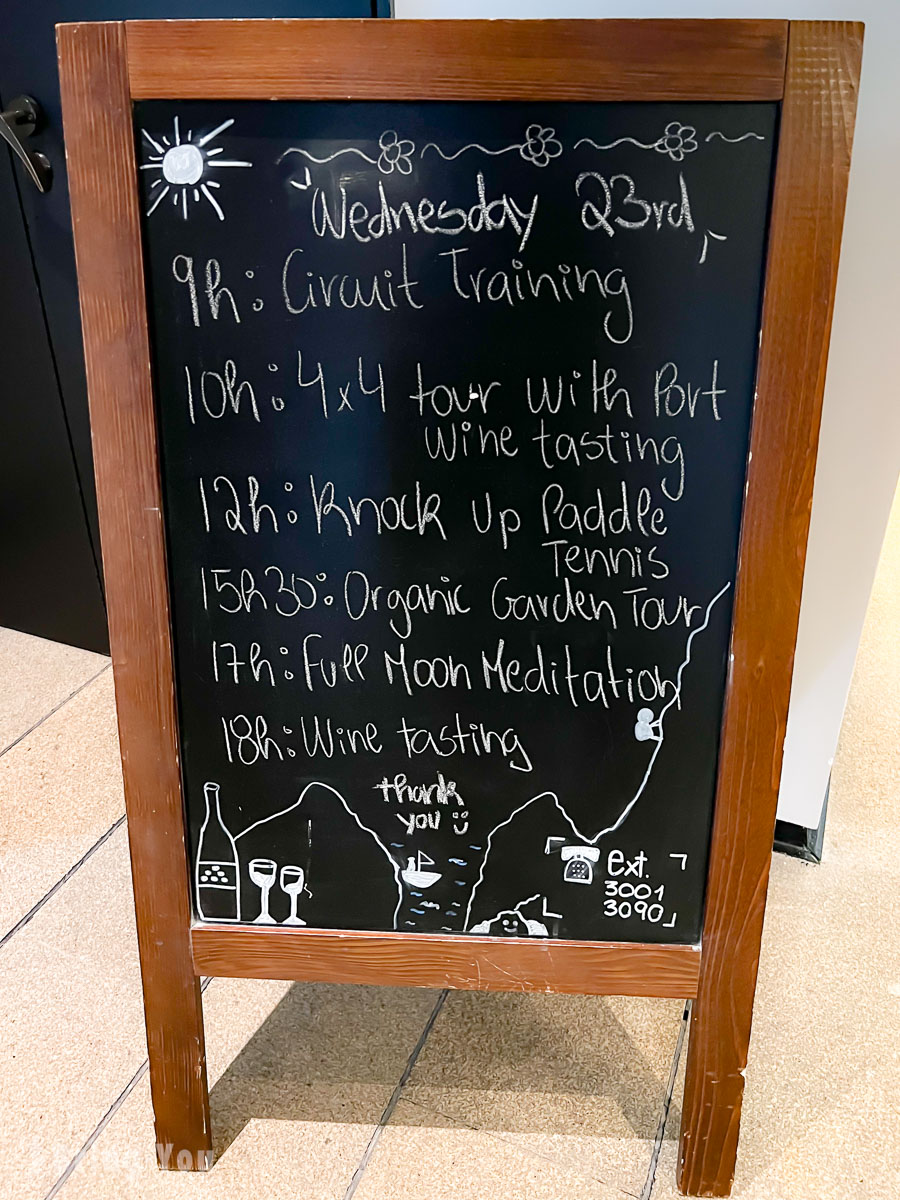 Wednesday 23rd
9h: Circuit Training
10h: 4x4 tour with Port
Wine tasting
12h: Knock Up Paddle
Tennis
15h30: Organic Garden Tour
17h: Full Moon Meditation
18h: Wine tasting
thank
you
ext.
3001
3090